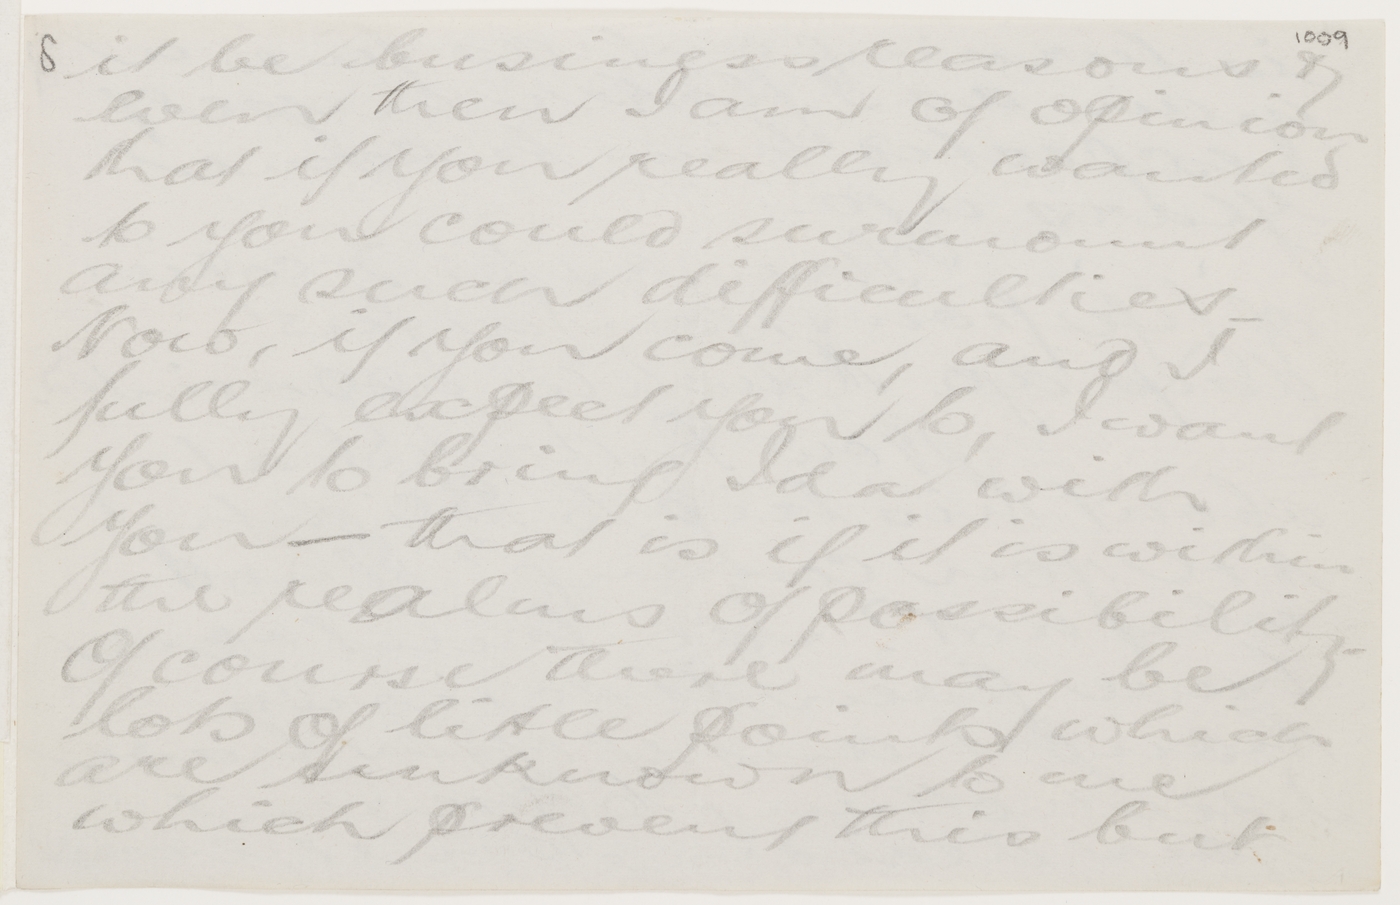 8 it be business reasons & 1009
even then I am of opinion
that if you really wanted
to you could surmount
any such difficulties_
Now, if you come, and I
fully expect you to, I want
you to bring Ida with
you — that is if it is within
the realms of possibility_
Of course there may be
lots of little points which
are unknown to me
which prevent this but